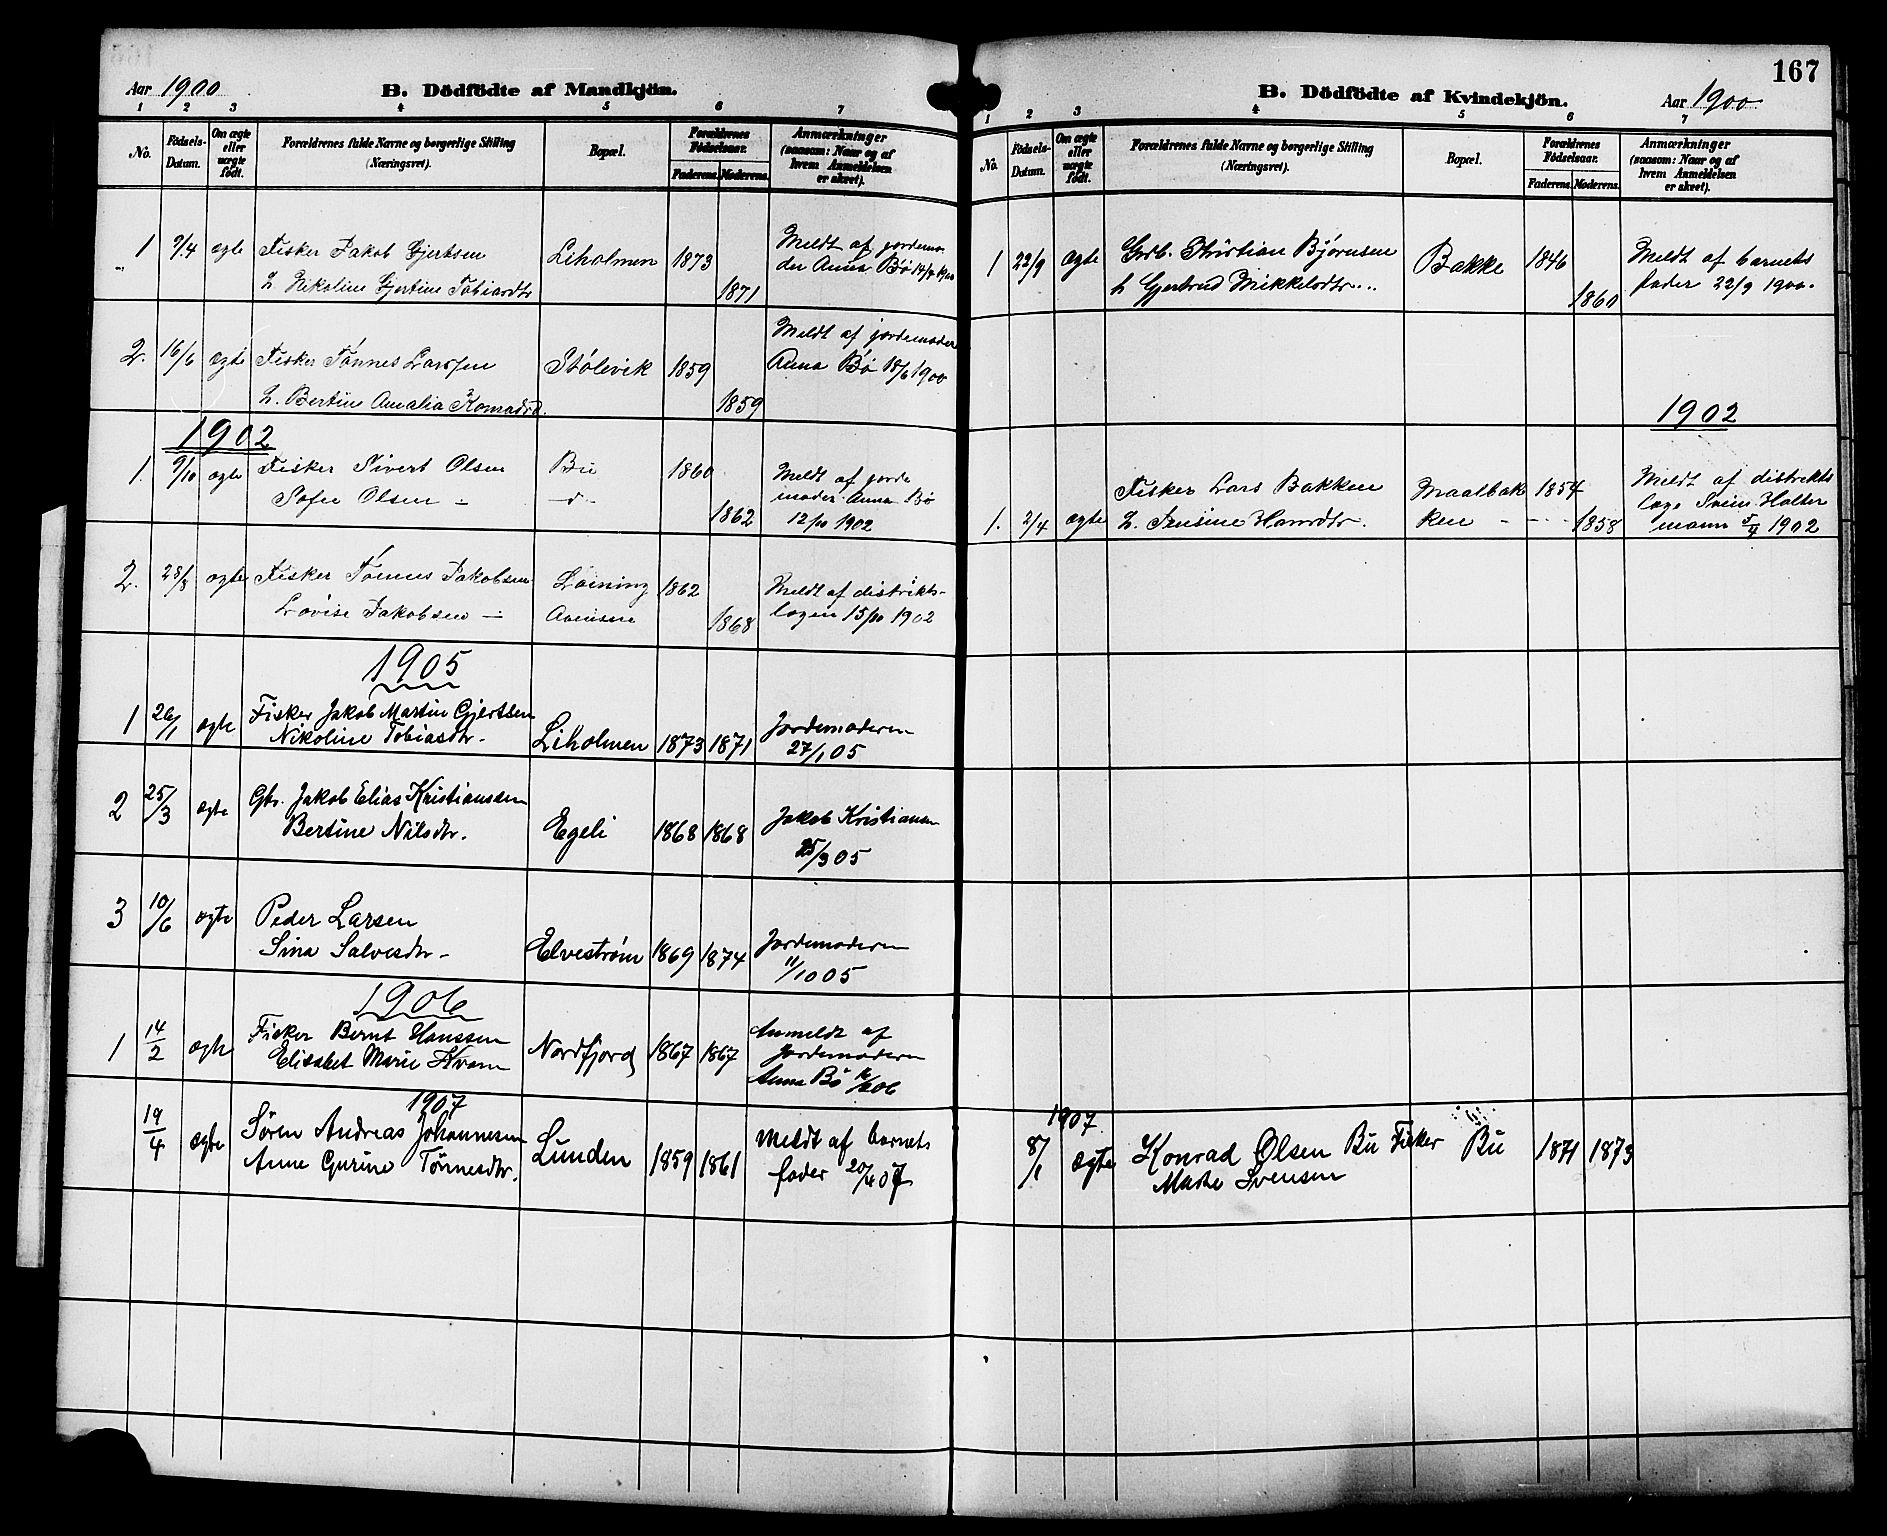 Aar 1900
B. Dödfödte af Mandkjön.
1 2 3 4 5 6 7
No.
Födsels-Datum.
Om ægte eller uægte födt.
Forældrenes fulde Navne og borgerlige Stilling
(Næringsvei).
Bopæl.
Forældrenes Födselsaar.
Faderens. Moderens.
Anmærkninger
(saasom: Naar og af
hvem Anmeldelsen
er skeet).
1 9/4 ægte Fisker Jakob Gjertsen Liholmen 1873 Meldt af jordemo-
H. Nikoline Gjertine Tobiasdtr 1871 der Anna Bø
2. 16/6 ægte Fisker Tønnes Larssen Stølevik 1859 Meldt af jordemoder
H. Bertine Amalia Konradsd. 1859 Anna Bø 18/6 1900
1902
1. 9/10 ægte Fisker Sivert Olsen Bu 1860 Meldt af jorde
Sofie Olsen - 1862 moder Anna Bø
12/10 1902
2. 28/8 ægte Fisker Tønnes Jakobsen 1862 Meldt af distrikts-
Lovise Jakobsen - 1868 lægen 15/10 1902
1905
1 26/1 ægte Fisker Jakob Martin Gjertsen
Nikoline Tobiasdtr. Liholmen 1873 1871 Jordemoderen
27/1 05
2 25/3 ægte Gbr. Jakob Elias Kristianssen
Bertine Nilsdtr. Egeli 1868 1868 Jakob Kristiansen
25/3 05
3 10/6 ægte Peder Larsen
Sina Salvesdtr - Elvestrøm 1869 1874 Jordemoderen
11/10 05
1906
1 14/2 ægte Fisker Bernt Hanssen
Elisabet Marie Kvam Nordfjord 1867 1867 Anmeldt af
jordemoderen
Anna Bö
1907
19/4 ægte Sören Andreas Johannesen
Anne Gurine Tönnesdtr. Lunden 1859 1861 Meldt af barnets
fader 20/4 07
167
B. Dödfödte af Kvindekjön.
Aar 1900
1 2 3 4 5 6 7
No.
Födsels-Datum.
Om ægte eller uægte födt.
Forældrenes fulde Navne og borgerlige Stilling
(Næringsvei).
Bopæl.
Forældrenes Födselsaar.
Faderens. Moderens.
Anmærkninger
(saasom: Naar og af
hvem Anmeldelsen
er skeet).
1 22/9 ægte Grdb. Kristian Bjørnsen Bakke 1846 Meldt af barnets
h Gjertrud Mikkelsdtr. 1860 fader 22/9 1900.
1902
Fisker Lars Bakken Maalbak 1854 Meldt af distrikts
1. 2/4 ægte H. Hansdtr. ken - 1858 læge Svein Holter
mann 5/4 1902
1907
8/1 ægte Konrad Olsen Bu Fisker Bu 1871 1873
Marte Svensen